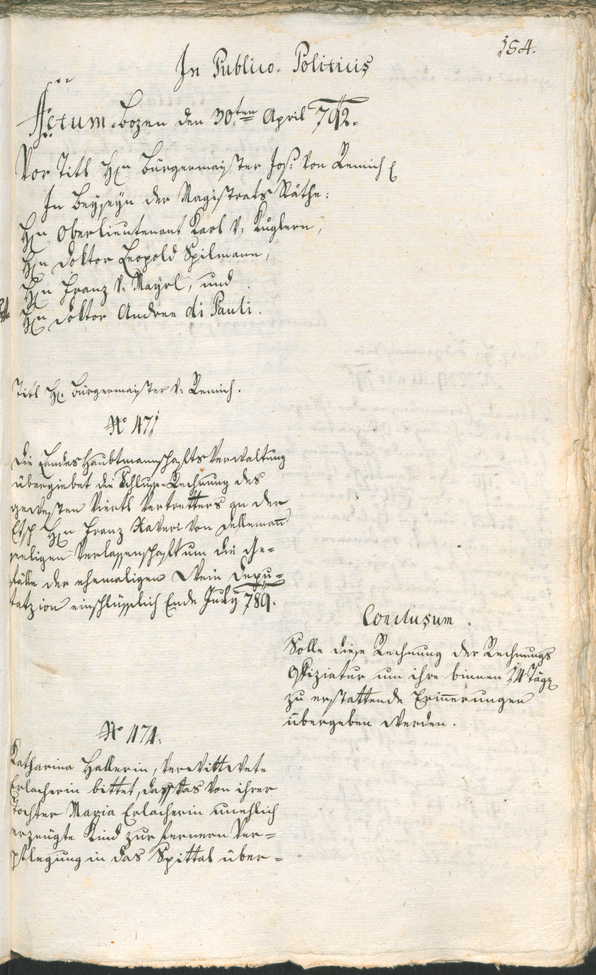 154.
In Publico-Politicis
Actum Bozen den 30ten April 792.
Vor Titl Hn Bürgermaister Jos: von Remich
In Beyseyn der Magistrats Räthe:
Hn Oberlieutenant Karl v: Kuglern,
Hn Doktor Leopold Spilmann,
Hn Franz v: Mayrl, und
Hn Doktor Andree di Pauli.
Titl H: Bürgermaister v: Remich.
No 471
Die Landeshauptmannschafts Verwaltung
übergiebet die Schluß-Rechnung des
gewesten Viertl Vertretters an der
Etsch Hn Franz Xaveri von Dellemann
seeligen Verlassenschaft um die Ge-
fälle der ehemaligen Wein Depu-
tazion einschlüßlich Ende July 789.
Conclusum.
Solle diese Rechnung der Rechnungs
Offiziatur um ihre binnen 14 Täge
zu erstattende Erinnerungen
übergeben werden.
No 474:
Katharina Hallerin, verwittwete
Erlacherin bittet, daß das von ihrer
Tochter Maria Erlacherin unehlich
erzeugte Kind zur fernern Ver-
pflegung in das Spittal über-